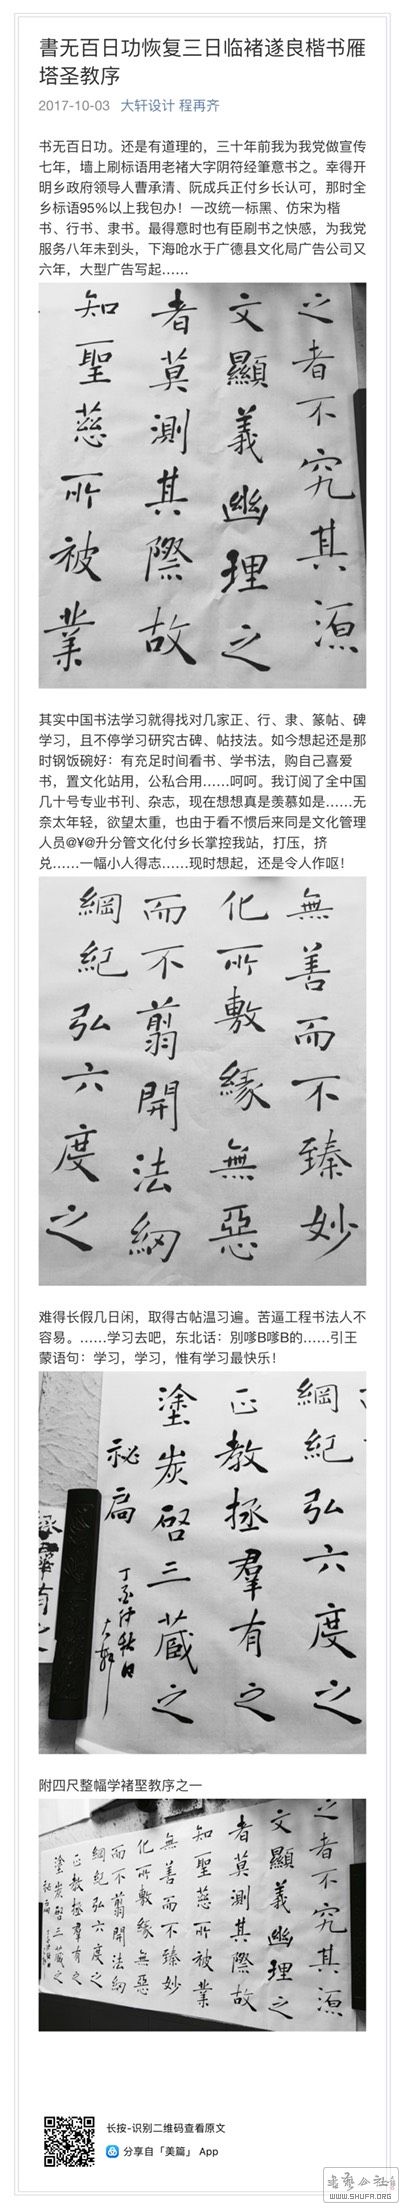 書无百日功恢复三日临褚遂良楷书雁
塔圣教序
2017-10-03 大轩设计 程再齐
书无百日功。还是有道理的，三十年前我为我党做宣传
七年，墙上刷标语用老褚大字阴符经筆意书之。幸得开
明乡政府领导人曹承清、阮成兵正付乡长认可，那时全
乡标语95%以上我包办！一改统一标黑、仿宋为楷
书、行书、隶书。最得意时也有臣刷书之快感，为我党
服务八年未到头，下海呛水于广德县文化局广告公司又
六年，大型广告写起……
之者不究其源
文顯義幽理之
者莫測其際故
知聖慈所被業
其实中国书法学习就得找对几家正、行、隶、篆帖、碑
学习，且不停学习研究古碑、帖技法。如今想起还是那
时钢饭碗好：有充足时间看书、学书法，购自己喜爱
书，置文化站用，公私合用……呵呵。我订阅了全中国
几十号专业书刊、杂志，现在想想真是羡慕如是……无
奈太年轻，欲望太重，也由于看不惯后来同是文化管理
人员@¥@升分管文化付乡长掌控我站，打压，挤
兑……一幅小人得志……现时想起，还是令人作呕！
無善而不臻妙
化所敷緣無惡
而不翦開法網
綱紀弘六度之
难得长假几日闲，取得古帖温习遍。苦逼工程书法人不
容易。……学习去吧，东北话：別嗲B嗲B的……引王
蒙语句：学习，学习，惟有学习最快乐！
綱紀弘六度之
正教拯羣有之
塗炭啓三蔵之
祕扃
丁酉仲秋日
大軒
附四尺整幅学褚聖教序之一
之者不究其源
文顯義幽理之
者莫測其際故
知聖慈所被業
無善而不臻妙
化所敷緣無惡
而不翦開法網
綱紀弘六度之
正教拯羣有之
塗炭啓三蔵之
祕扃
长按-识别二维码查看原文
分享自「美篇」 App
WWW.SHUFA.ORG